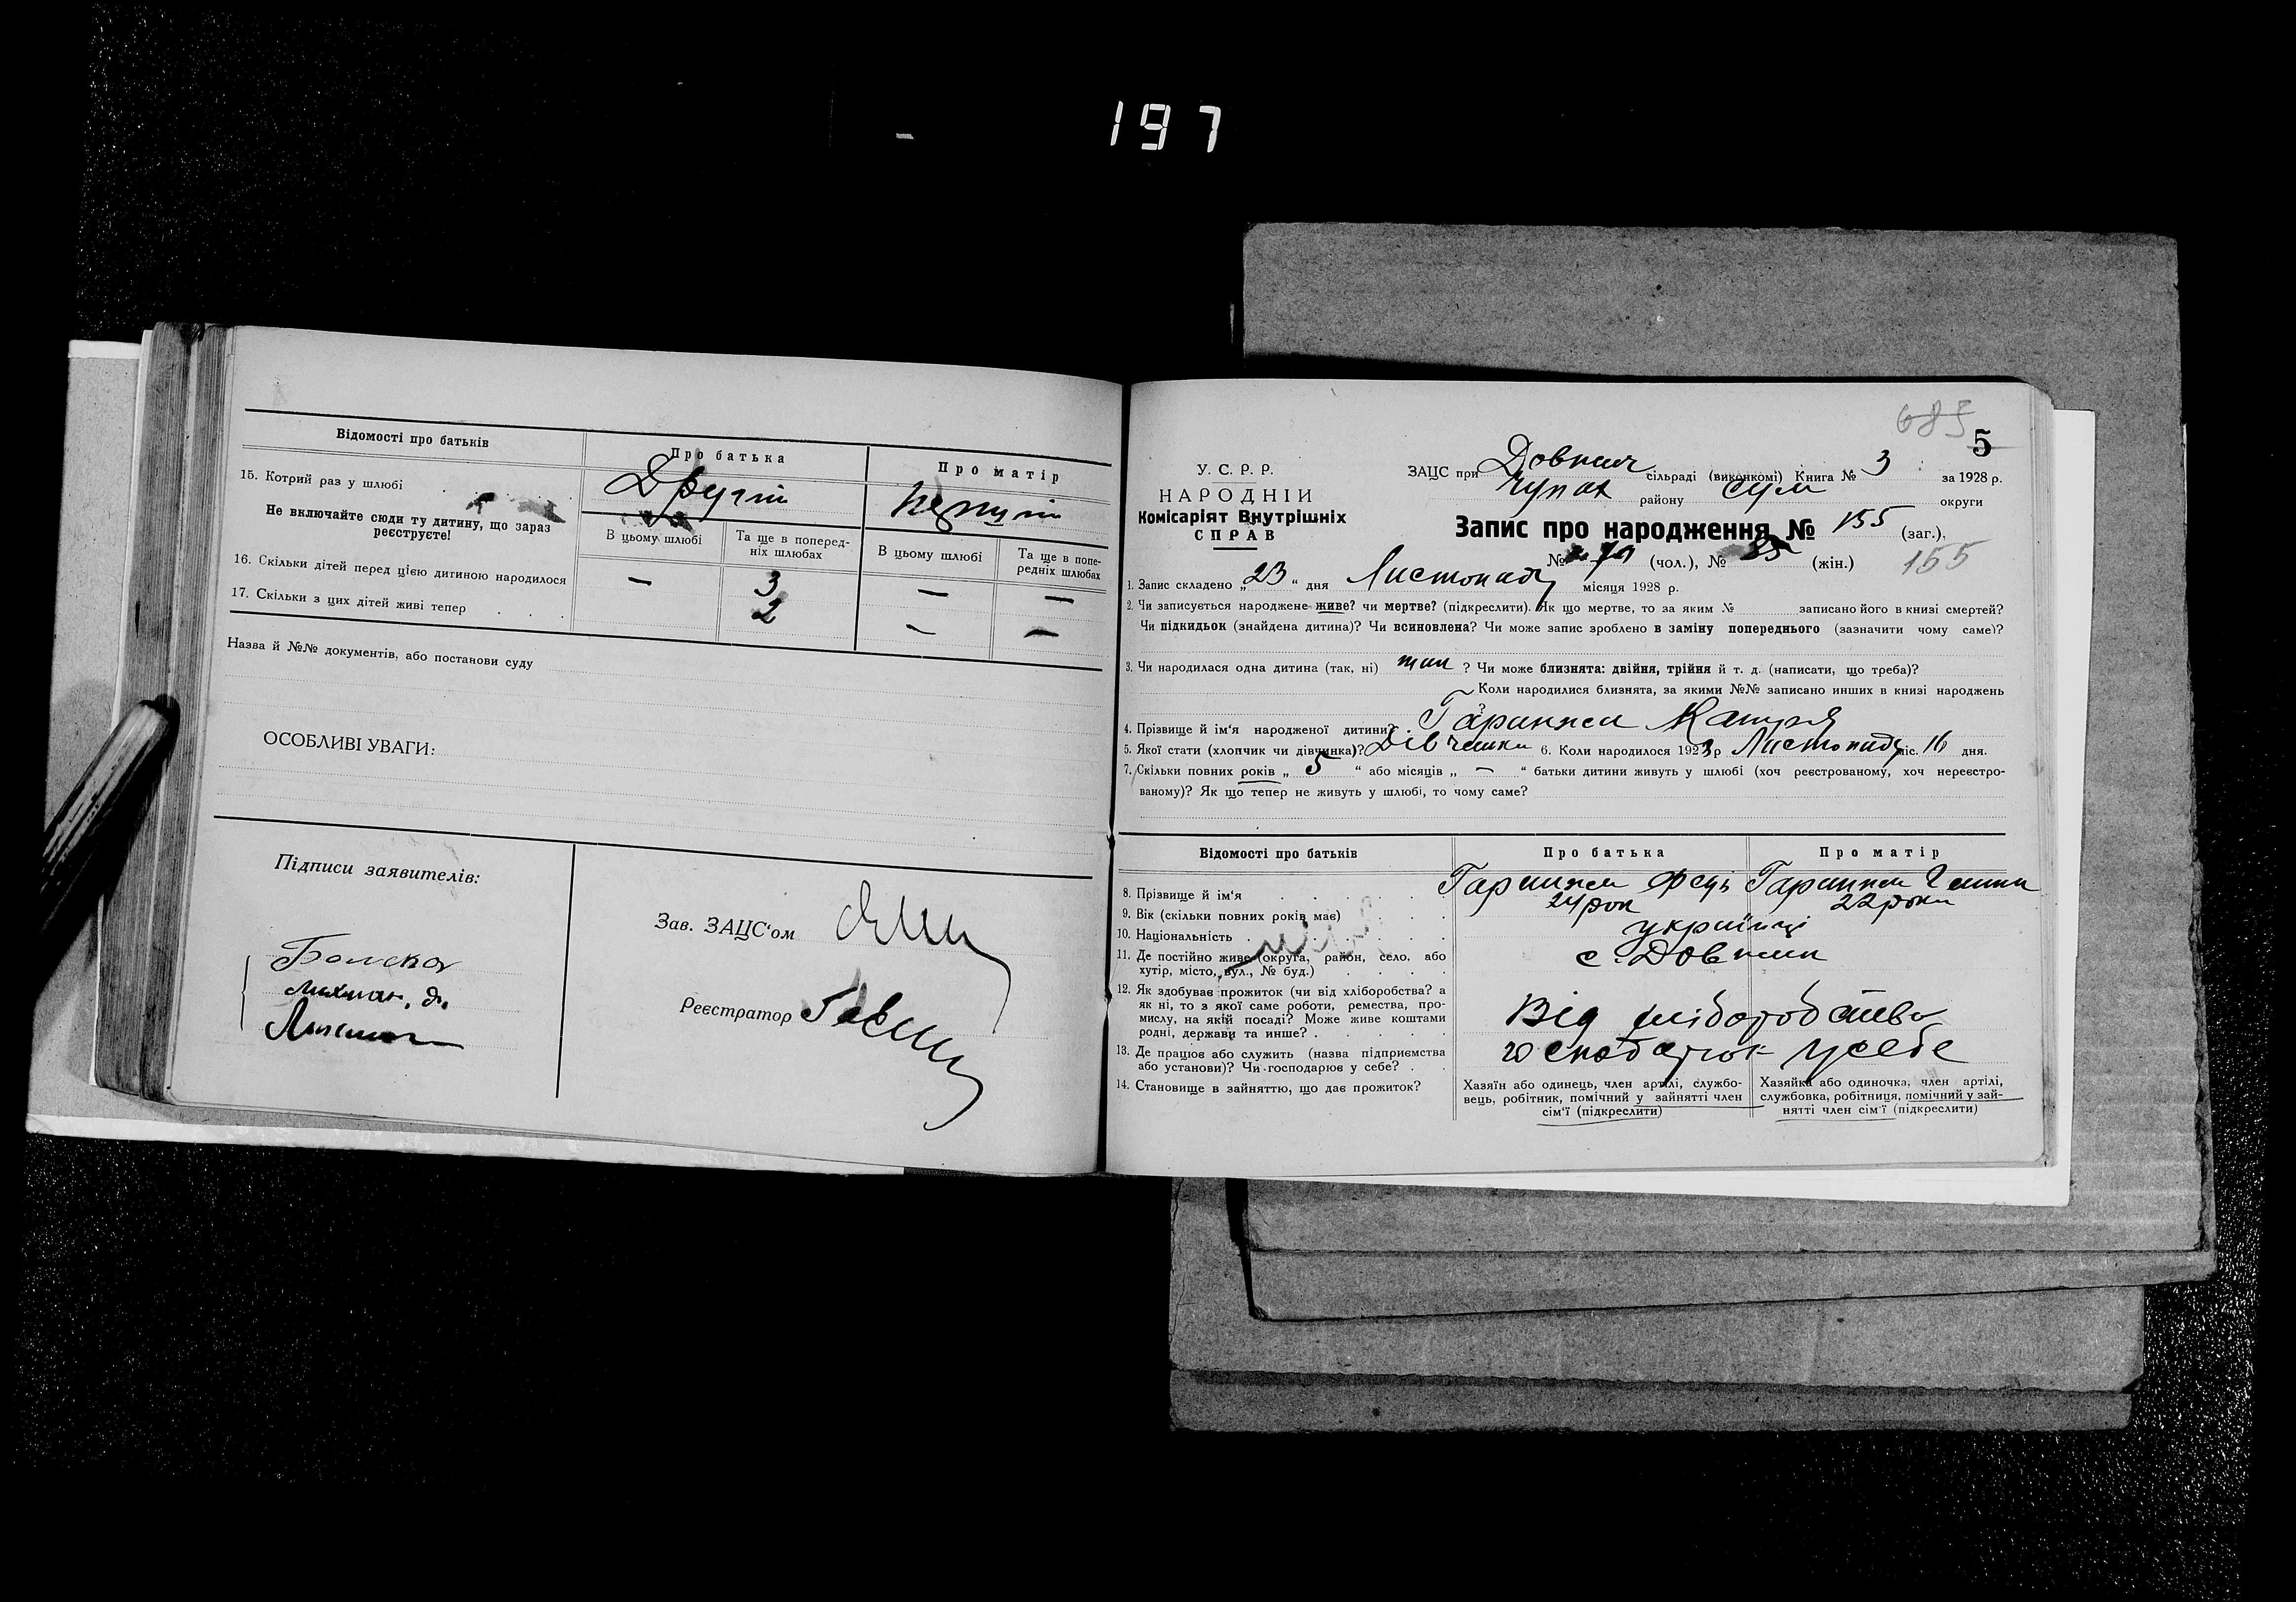 197
Відомості про батьків
Про батька
Про матір
15. Котрий раз у шлюбі
Другий
Перший
Не включайте сюди ту дитину, що зараз
реєструєте!
В цьому шлюбі
Та ще в поперед-
ніх шлюбах
В цьому шлюбі
Та ще в попе-
редніх шлюбах
16. Скільки дітей перед цією дитиною народилося
— 3 — —
17. Скільки з цих дітей живі тепер
2 — —
Назва й №№ документів, або постанови суду
ОСОБЛИВІ УВАГИ:
Підписи заявителів:
Зав. ЗАЦС‘ом
Реєстратор
685
5
У. С. Р. Р.
НАРОДНІЙ
Комісаріят Внутрішніх
СПРАВ
ЗАЦС при сільраді (виконкомі) Книга № 3 за 1928 р.
району Сум округи
Запис про народження № 155 (заг.),
№ (чол.), № 85 (жін.) 155
1. Запис складено „23“ дня Листопаду місяця 1928 р.
2. Чи записується народжене живе? чи мертве? (підкреслити). Як що мертве, то за яким № записано його в книзі смертей?
Чи підкидьок (знайдена дитина)? Чи всиновлена? Чи може запис зроблено в заміну попереднього (зазначити чому саме)?
3. Чи народилася одна дитина (так, ні) так ? Чи може близнята: двійня, трійня й т. д. (написати, що треба)?
Коли народилися близнята, за якими №№ записано инших в книзі народжень
?
4. Прізвище й ім‘я народженої дитини? Гаранжа Катря
5. Якої стати (хлопчик чи дівчинка)? Дівчинка 6. Коли народилося 192 р. Листопаду міс. 16 дня.
7. Скільки повних років „ 5 “ або місяців „ — “ батьки дитини живуть у шлюбі (хоч реєстрованому, хоч нереєстро-
ваному)? Як що тепер не живуть у шлюбі, то чому саме?
Відомості про батьків
Про батька
Про матір
8. Прізвище й ім‘я
Гаранжа
Гаранжа
9. Вік (скільки повних років має)
22 роки
10. Національність
українці
11. Де постійно живе (округа, район, село, або
хутір, місто, вул., № буд.)
с.
12. Як здобуває прожиток (чи від хліборобства? а
як ні, то з якої саме роботи, ремества, про-
мислу, на якій посаді? Може живе коштами
родні, держави та инше?
Від хліборобства
13. Де працює або служить (назва підприємства
або установи)? Чи господарює у себе?
у себе
14. Становище в зайняттю, що дає прожиток?
Хазяїн або одинець, член артілі, службо-
вець, робітник, помічний у зайнятті член
сім‘ї (підкреслити)
Хазяйка або одиночка, член артілі,
службовка, робітниця, помічний у зай-
нятті член сім‘ї (підкреслити)